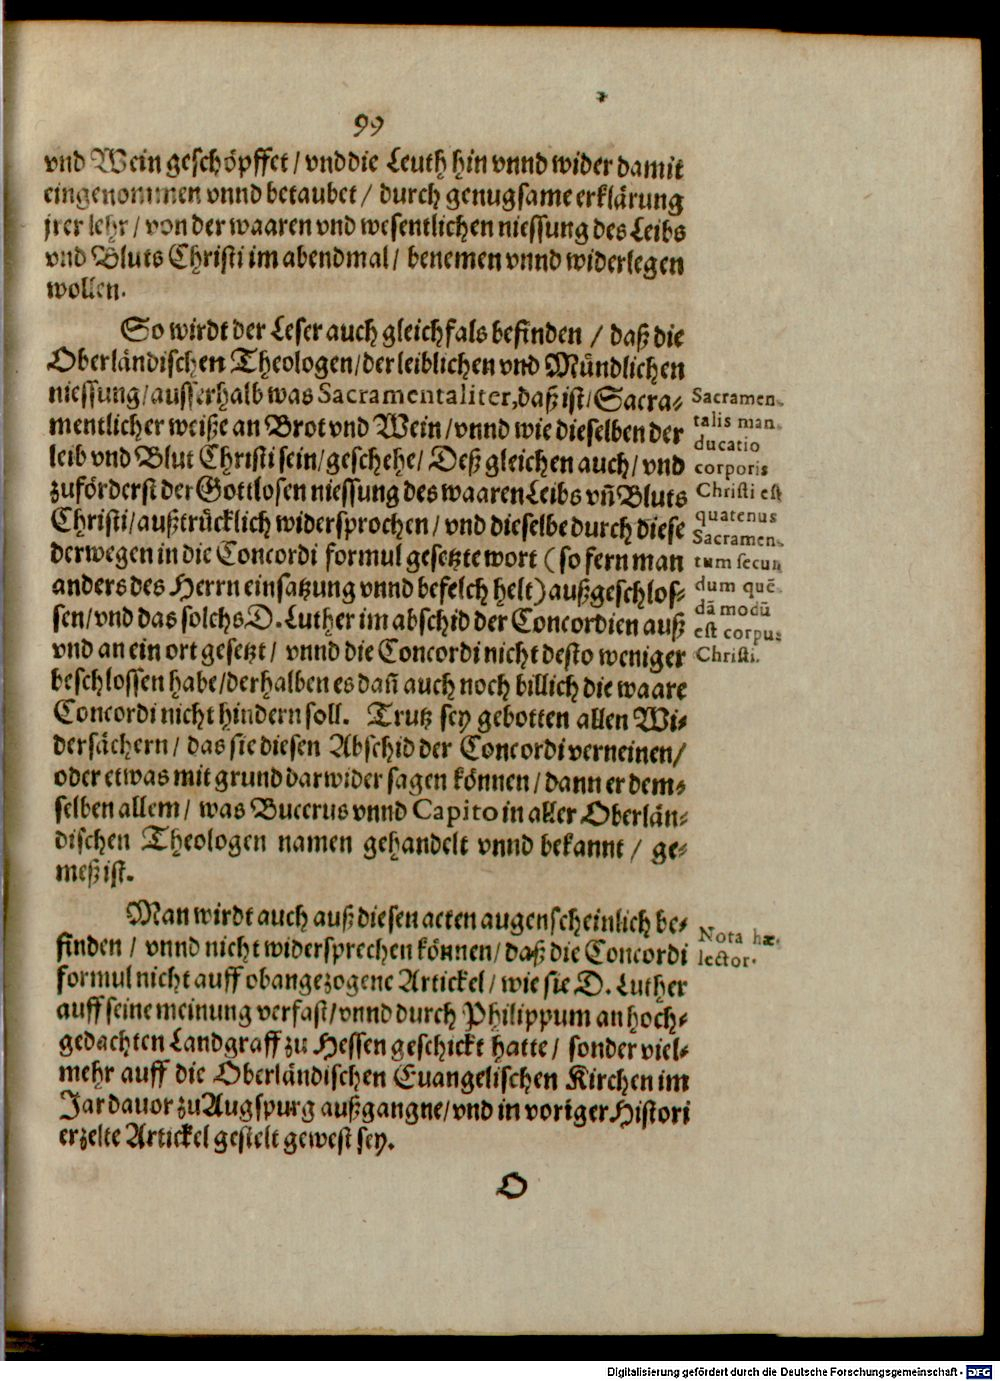 99
vnd Wein geschöpffet / vnd die Leuth hin vnnd wider damit
eingenommen vnnd betaubet / durch genugsame erklärung
jrer lehr / von der waaren vnd wesentlichen niessung des Leibs
vnd Bluts Christi im abendmal / benemen vnnd widerlegen
wollen.
So wirdt der Leser auch gleichfals befinden / daß die
Oberländischen Theologen / der leiblichen vnd Mündlichen
niessung / ausserhalb was Sacramentaliter, daß ist / Sacra-
mentlicher weiße an Brot vnd Wein / vnnd wie dieselben der
leib vnd Blut Christi sein / geschehe / Deßgleichen auch / vnd
zuförderst der Gottlosen niessung des waaren Leibs vñ Bluts
Christi / außtrücklich widersprochen / vnd dieselbe durch diese
derwegen in die Concordi formul gesetzte wort (so fern man
anders des Herrn einsatzung vnnd befelch helt) außgeschlos-
sen / vnd das solchs D. Luther im abschid der Concordien auß
vnd an ein ort gesetzt / vnnd die Concordi nicht desto weniger
beschlossen habe / derhalben es dañ auch noch billich die waare
Concordi nicht hindern soll. Trutz sey gebotten allen Wi-
dersächern / das sie diesen Abschid der Concordi verneinen /
oder etwas mit grund darwider sagen können / dann er dem-
selben allem / was Bucerus vnnd Capito in aller Oberlän-
dischen Theologen namen gehandelt vnnd bekannt / ge-
meß ist.
Sacramen-
talis man
ducatio
corporis
Christi est
quatenus
Sacramen-
tum secun
dum quẽ-
dã modũ
est corpus
Christi.
Man wirdt auch auß diesen acten augenscheinlich be-
finden / vnnd nicht widersprechen können / daß die Concordi
formul nicht auff obangezogene Artickel / wie sie D. Luther
auff seine meinung verfast / vnnd durch Philippum an hoch-
gedachten Landgraff zu Hessen geschickt hatte / sonder viel-
mehr auff die Oberländischen Euangelischen Kirchen im
Jar dauor zu Augspurg außgangne / vnd in voriger Histori
erzelte Artickel gestelt gewest sey.
Nota hæc
lector.
O
Digitalisierung gefördert durch die Deutsche Forschungsgemeinschaft - DFG